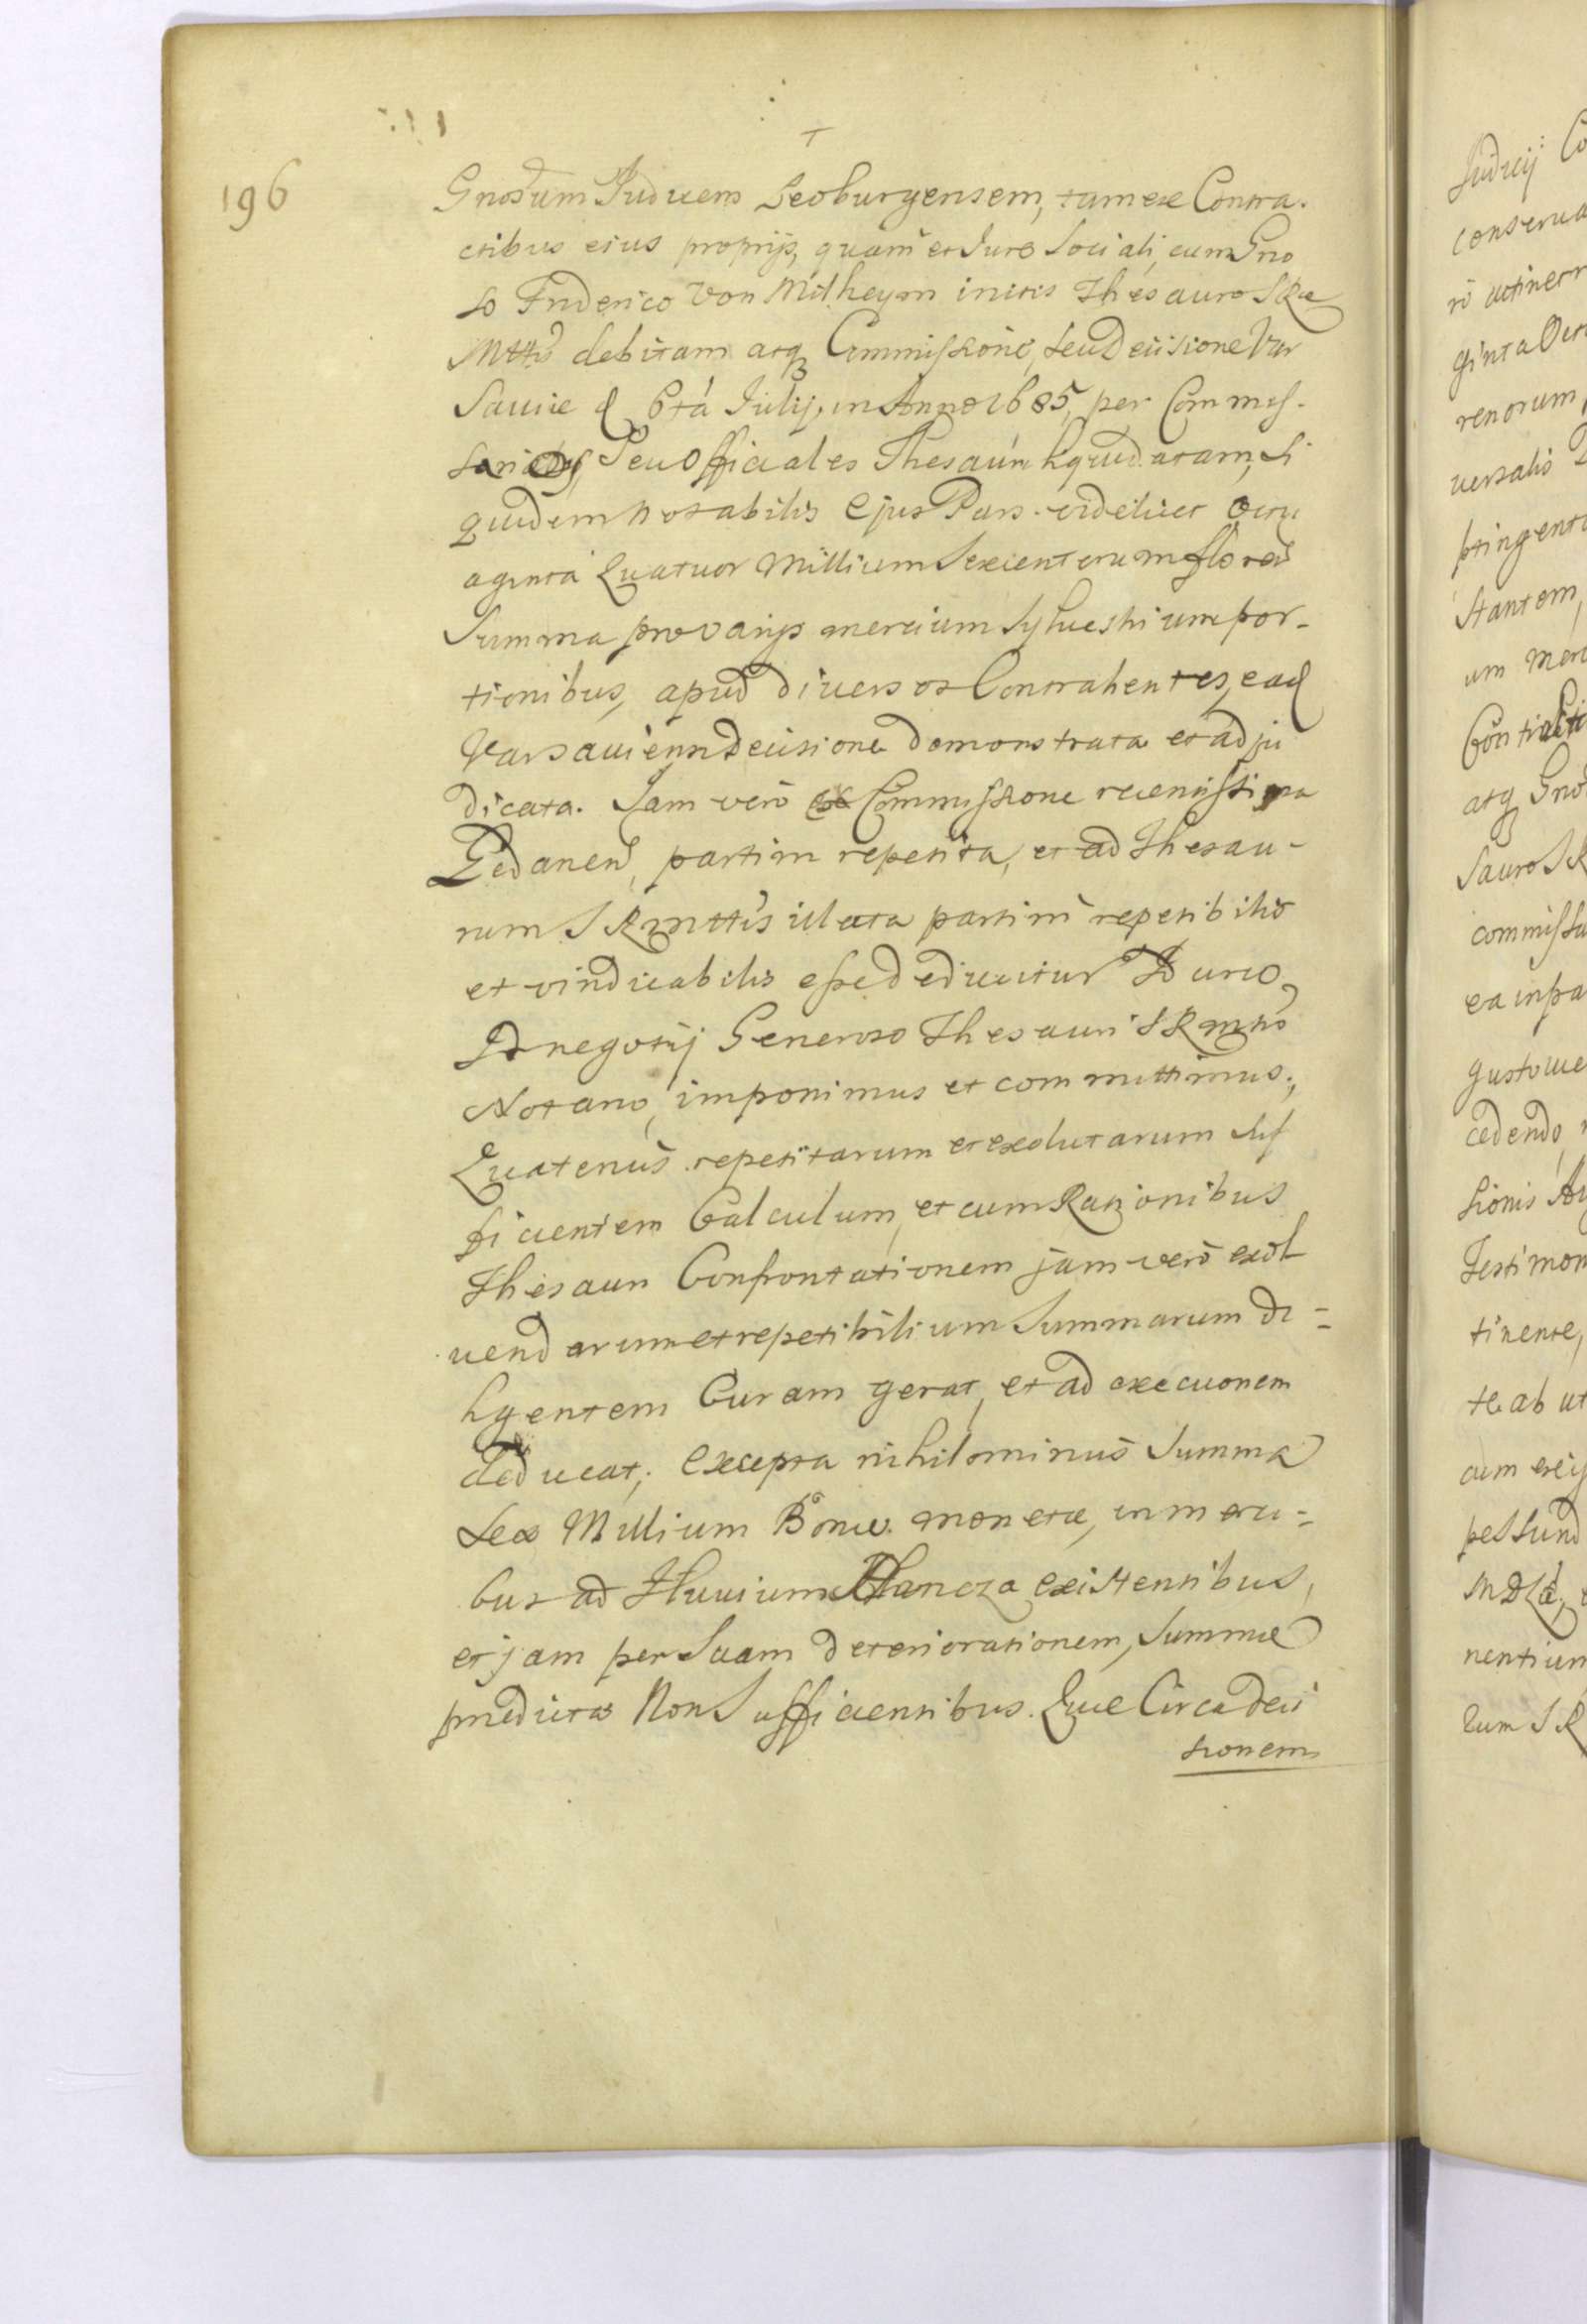 196
Gnosum Judicem Leoburgensem, tam ex Contra-
ctibus eius proprijs, quam et Jure Sociali, cum Gno
so Friderico Von Milheym initis Thesauro SRae
Mttis debitam atq Commissione, seu Decisione Var
Saviae d 6ta Julij, in Anno 1685, per Commis-
sarios, Seu Officiales Thesauri liquidatam, Si
quidem Notabilis Ejus Pars videlicet Octu
aginta Quatuor Millium Sexcentorum floren
Summa pro varijs mercium Sylvestrium por-
tionibus, apud diversos Contrahentes, ead
Varsavienn Decisione demonstrata et adju
dicata. Jam vero ex Commissione recentissima
Gedanen, partim repetita, et ad Thesau-
rum SRMttis illata partim repetibilis
et vindicabilis esse deducitur
Id negotij Generoso Thesauri SRMttis
Notario, imponimus et committimus;
Quatenus repetitarum et exolutarum suf
ficientem Calculum, et cum Rationibus
Thesauri Confrontationem jam vero exol
vendarum et repetibilium Summarum di=
ligentem Curam gerat, et ad execuonem
deducat; Excepta nihilominus Summa
Sex Millium Bonae monetae, in merci=
bus ad Fluvium existentibus,
et jam per Suam deteriorationem, Summae
praedictae Non Sufficientibus. Quae Circa Deci
sionem
Judicij Co
conserva
ro attinet
ginta Oct
renorum,
versalis
ptingent
Stantem,
um Merc
atq Gno
Sauro SR
commissa
ea in pa
cedendo,
sionis
Testimon
tinente,
te ab ut
cum
pessund
nentium
lum SR